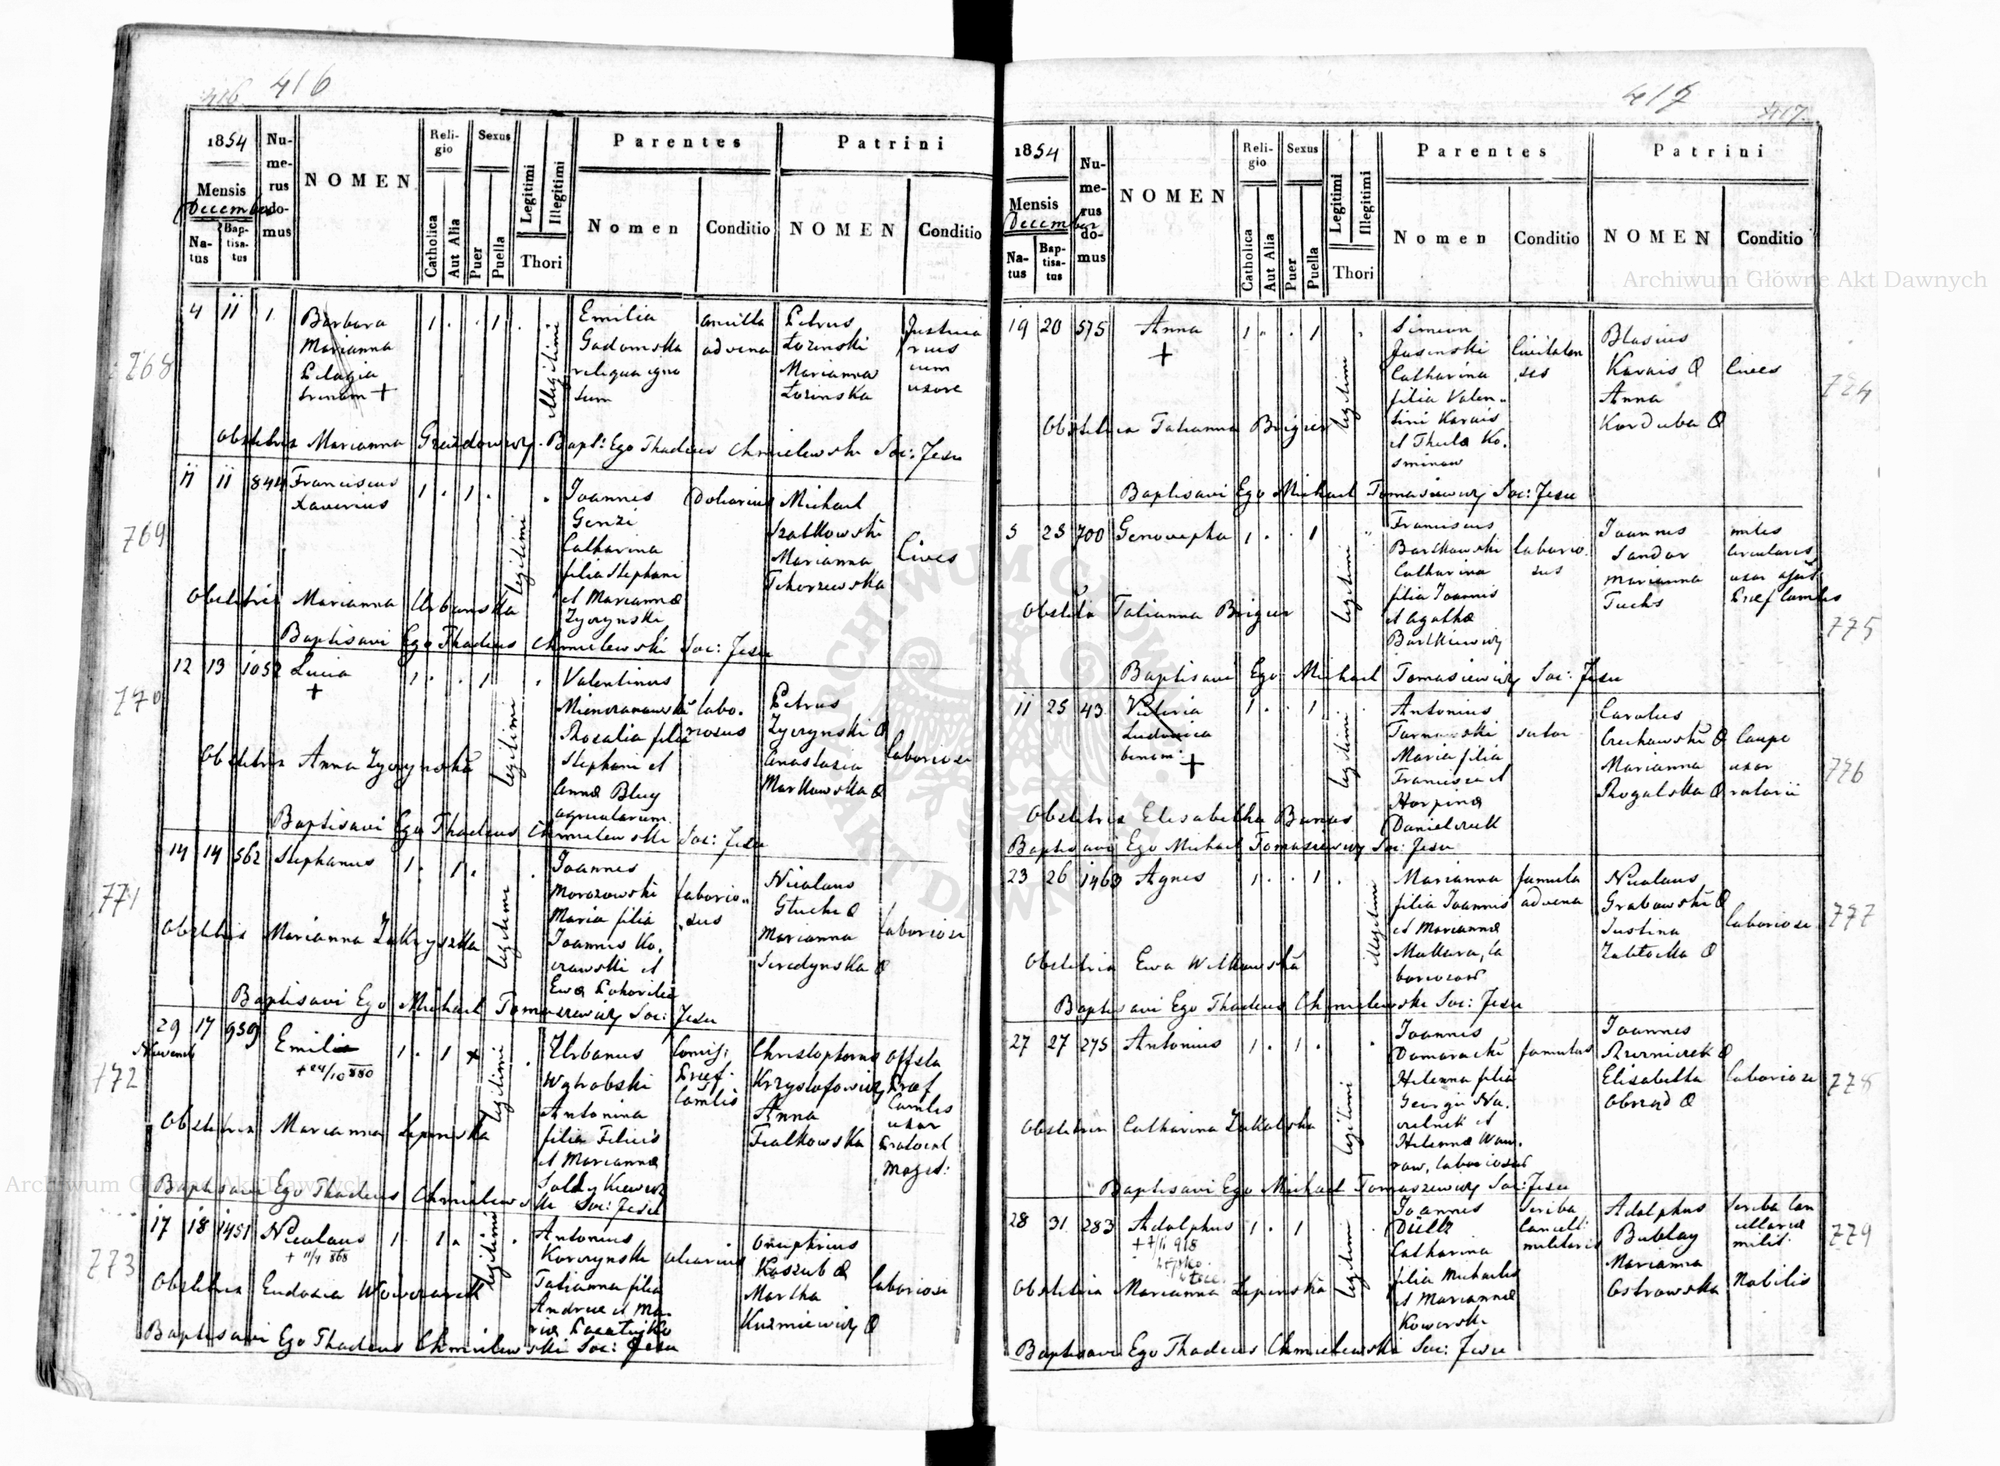 416 416
1854
Mensis
December
Natus
Baptisatus
Numerus domus
NOMEN
Religio
Catholica
Aut Alia
Sexus
Puer
Puella
Legitimi
Illegitimi
Thori
Parentes
Nomen
Conditio
Patrini
NOMEN
Conditio
768
4 11 1
Barbara
Marianna
Pelagia
trinom +
1 . . 1 .
illegitimi
Emilia
Gadomska
reliqua igno
tum
ancilla
advena
Petrus
Łozinski
Marianna
Łozinska
Justitia
rius
cum
uxore
Obstetrix Marianna Gwizdowicz. Bapt: Ego Thadeus Chmielewski Soc: Jesu
769
11 11 844
Franciscus
Xaverius
1 . 1 .
legitimi
Joannes
Genzi
Catharina
filia Stephani
et Mariannæ
Zyczynski
Doliarius
Michael
Szatkowski
Marianna
Tchorzewska
Cives
Obstetrix Marianna Urbanska
Baptisavi Ego Thadeus Chmielewski Soc: Jesu
770
12 13 1052
Lucia
+
1 . . 1
legitimi
Valentinus
Rosalia filia
Stephani et
Annæ Bluy
agricolarum
labo.
riosus
Petrus
Zyczynski
Anastasia
Markowska
laboriosi
Obstetrix Anna Zyczynska
Baptisavi Ego Thadeus Chmielewski Soc: Jesu
771
14 14 562
Stephanus
1 . 1 .
legitimi
Joannes
Morozowski
Maria filia
Joannis Ko.
zrowski et
laborio„
sus
Nicolaus
Gluch
Marianna
Seredynska
laboriosi
Obstetrix Marianna Zakryszka
Baptisavi Ego Michael Tomaszewicz Soc: Jesu
772
29 17 959
Novemb
Emilia
+ 24/10 880
1 . 1 x
legitimi
Urbanus
Wątrobski
Antonina
filia Felicis
et Mariannæ
Præf.
Comlis
Christophorus
Krzysztofowicz
Anna
Fialkowska
Offsta
Præf
Comlis
uxor
Magst:
Obstetrix Marianna Lepinska
Baptisavi Ego Thadeus Chmielewski Soc: Jesu
773
17 18 1451
Nicolaus
+ 11/4 868
1 . 1 .
legitimi
Antonius
Korczynski
Tatianna filia
Andreæ et Ma.
riæ
doliarius
Onuphrius
Koszub
Martha
Kuzmiewicz
laboriosi
Obstetrix Eudoxia
Baptisavi Ego Thadeus Chmielewski Soc: Jesu
417 417
1854
Mensis
December
Natus
Baptisatus
Numerus domus
NOMEN
Religio
Catholica
Aut Alia
Sexus
Puer
Puella
Legitimi
Illegitimi
Thori
Parentes
Nomen
Conditio
Patrini
NOMEN
Conditio
774
19 20 575
Anna
+
1 . . 1
legitimi
Simeon
Jasinski
Catharina
filia Valen„
tini Karais
et Theclæ Ko.
sminow
Civitaten
ses
Blasius
Karais
Anna
Korduba
Cives
Obstetrica Tatianna Brigier
Baptisavi Ego Michael Tomasiewicz Soc: Jesu
775
5 25 700
Genovepha
1 . . 1
legitimi
Franciscus
Bartkowski
Catharina
filia Joannis
et Agathæ
Bartkiewicz
laborio.
sus
Joannes
Sandor
Marianna
Fuchs
miles
circularis
uxor
Præf Comlis
Tatianna Brigier
Baptisavi Ego Michael Tomasiewicz Soc: Jesu
776
11 25 43
Ludovica
binom +
1 . . 1 .
legitimi
Antonius
Tarnawski
Maria filia
Francisci et
Horpinæ
Danielczuk
sutor
Carolus
Czechowski
Marianna
Rogalska
Caupo
uxor
Obstetrix Elisabetha
Baptisavi Ego Michael Tomaszewicz Soc: Jesu
777
23 26 1463
Agnes
1 . . 1 .
illegitimi
Marianna
filia Joannis
et Mariannæ
Makara, la
boriosor
famula
advena
Nicolaus
Grabowski
Justina
Zablocka
laboriosi
Obstetrix Ewa Witkowska
Baptisavi Ego Thadeus Chmielewski Soc: Jesu
778
27 27 275
Antonius
1 . 1 .
legitimi
Joannes
Domaracki
Helenna filia
Georgii Na.
zelnik et
Helennæ Waw.
row, laboriosor
famulus
Joannes
Elisabetha
Obrzud
laboriosi
Obstetrix Catharina Zakalska
Baptisavi Ego Michael Tomaszewicz Soc: Jesu
779
28 31 283
Adolphus
+ 7/11 918
1 . 1
legitimi
Joannes
Catharina
filia Michaelis
et Mariannæ
Kowerski
Scriba
Cancell:
militaris
Adolphus
Bublay
Marianna
Ostrowska
Scriba Can
cellariæ
milit:
Nobilis
Obstetrix Marianna Lepinska
Baptisavi Ego Thadeus Chmielewski Soc: Jesu
Archiwum Główne Akt Dawnych
Archiwum Główne Akt Dawnych
ARCHIWUM GŁÓWNE AKT DAWNYCH